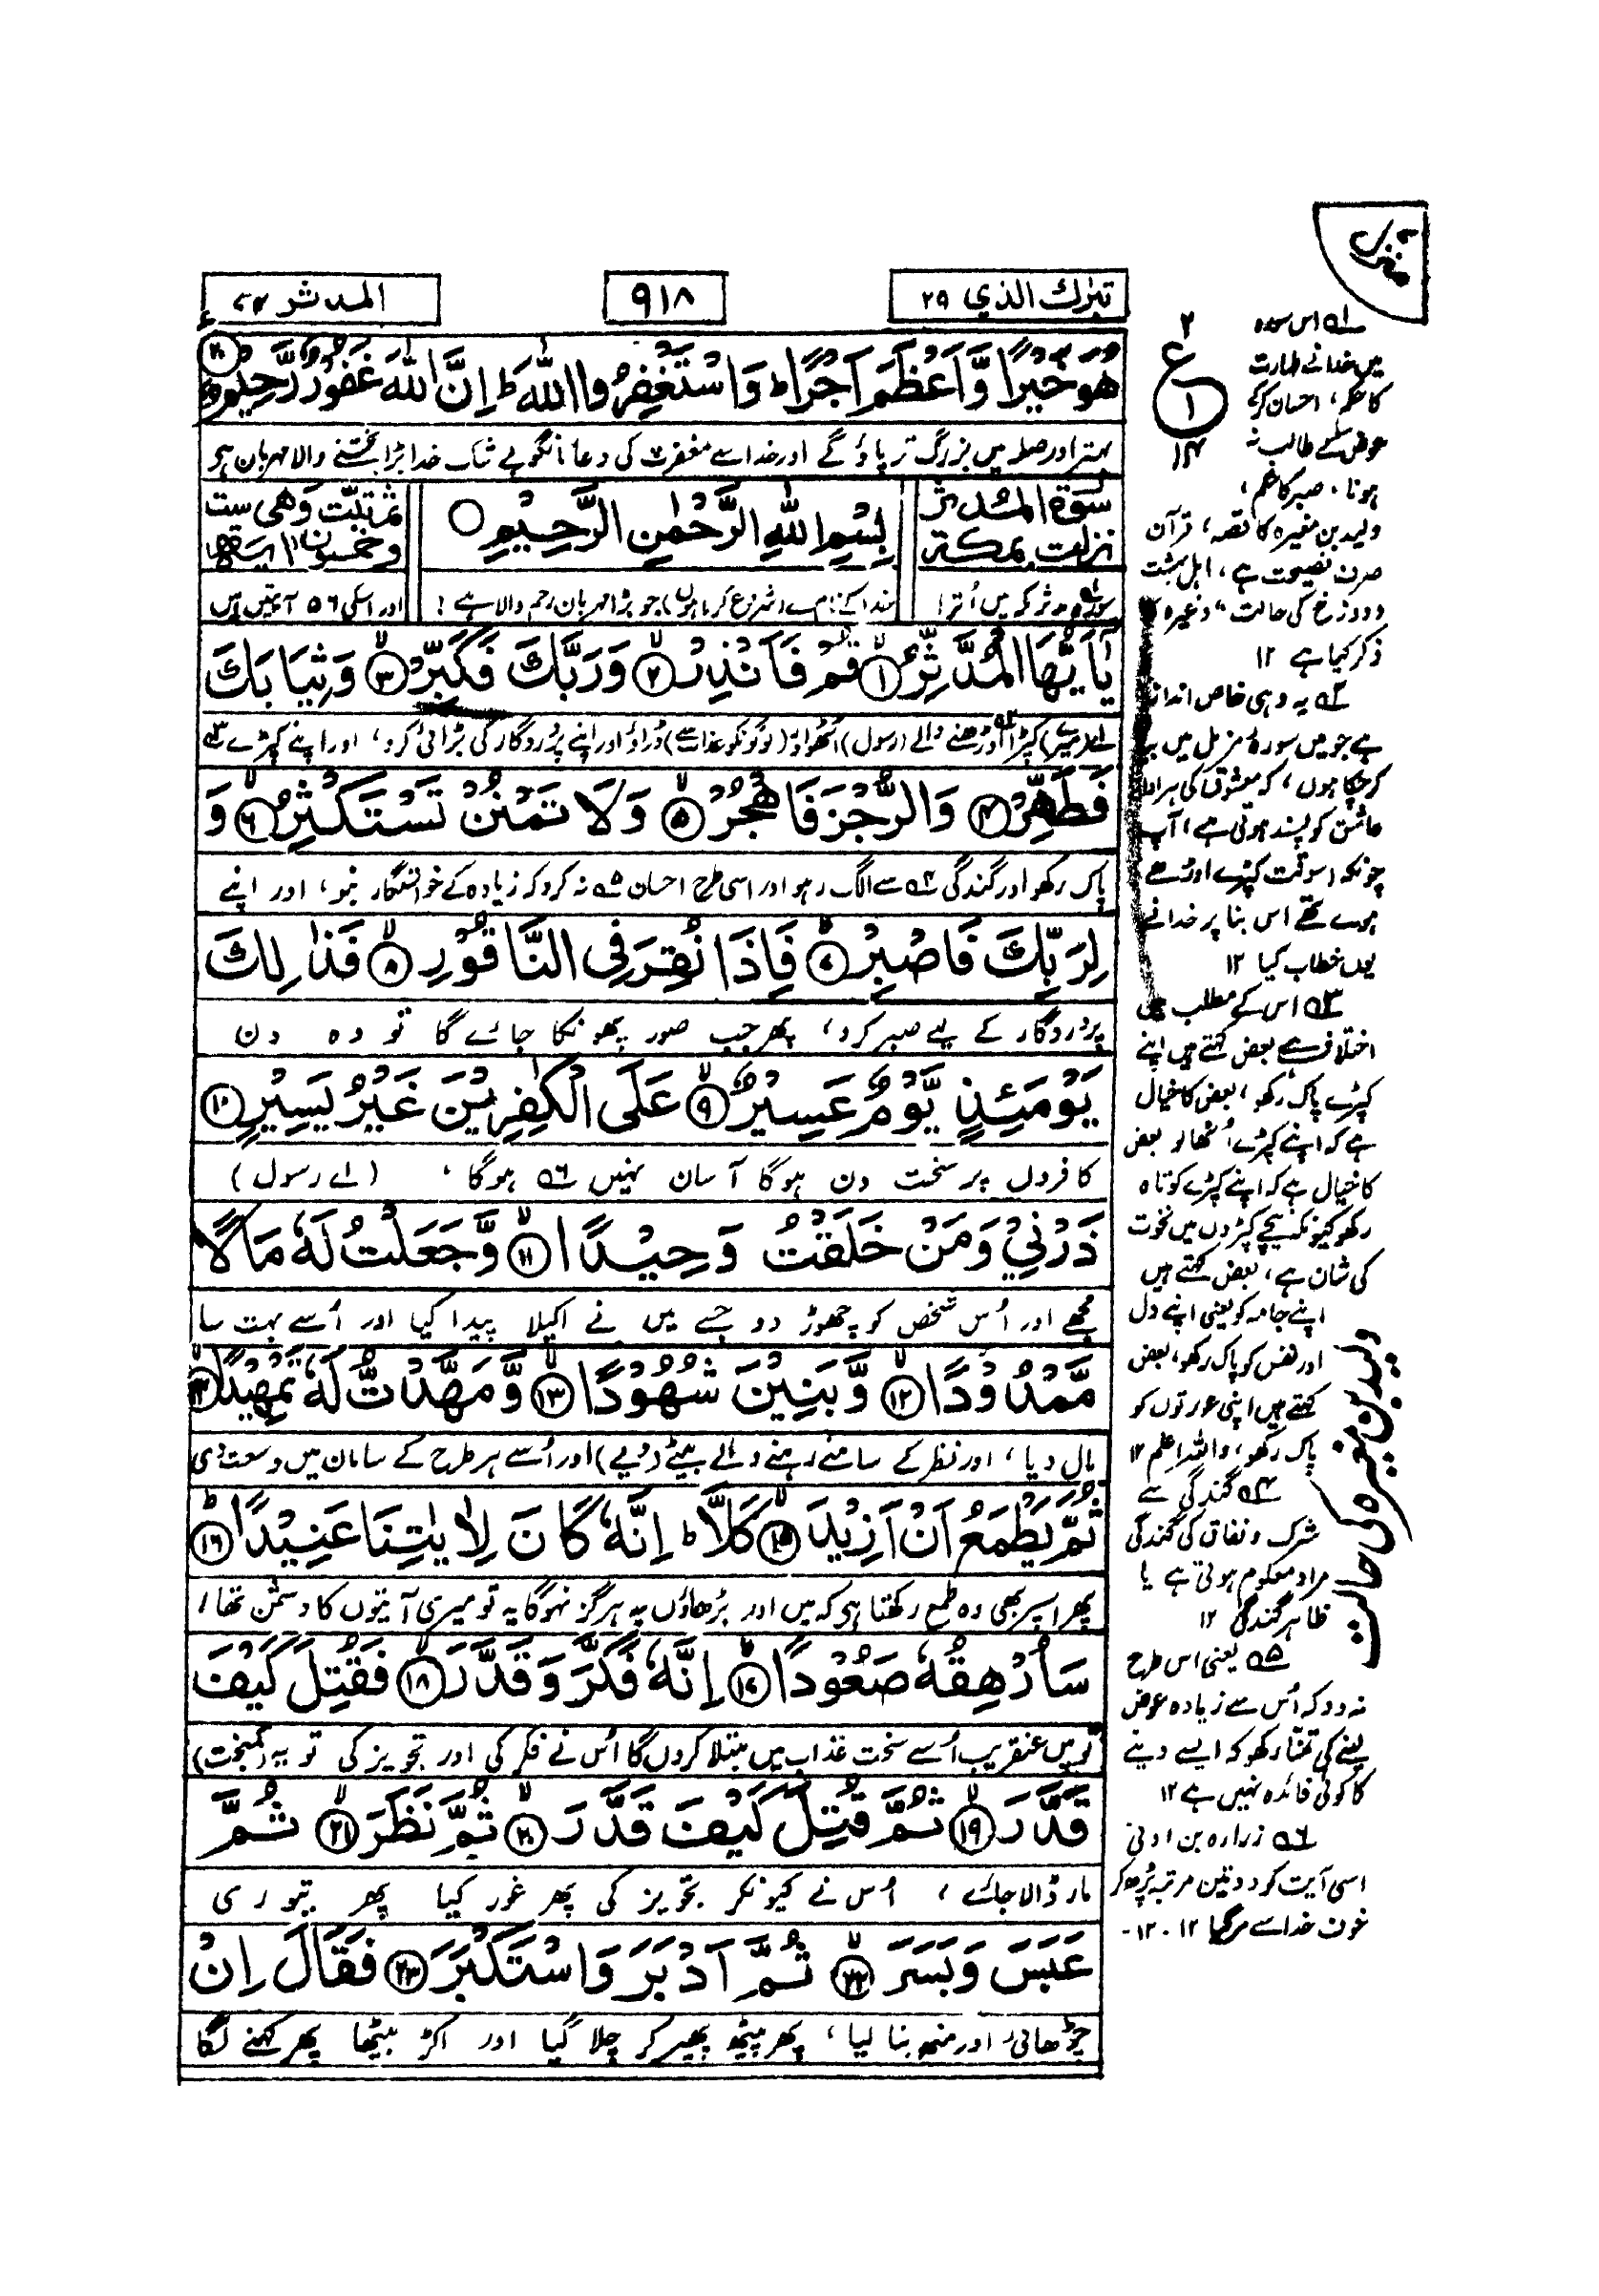 منزل
تبٰرك الذي ٢٩
٩١٨
المدثر ٧٤
هُوَ خَيْرًا وَّاَعْظَمَ اَجْرًا ؕ وَاسْتَغْفِرُوا اللّٰهَ ؕ اِنَّ اللّٰهَ غَفُوْرٌ رَّحِيْمٌ ۝٢٠
بہتر اور صلہ میں بزرگ تر پاؤ گے اور خدا سے مغفرت کی دعا مانگو بے شک خدا بڑا بخشنے والا مہربان ہے
سورۃ المدثر
نزلت بمکۃ
بِسْمِ اللّٰهِ الرَّحْمٰنِ الرَّحِيْمِ
وھی ست
وخمسون
سورہ مدثر مکہ میں اُترا
خدا کے نام سے (شروع کرتا ہوں) جو بڑا مہربان رحم والا ہے
اور اسکی ٥٦ آئتیں ہیں
يٰۤاَيُّهَا الْمُدَّثِّرُ ۝١ قُمْ فَاَنْذِرْ ۝٢ وَرَبَّكَ فَكَبِّرْ ۝٣ وَثِيَابَكَ
اے (میرے) کپڑا اوڑھنے والے (رسول) اٹھو اور (لوگونکو عذاب سے) ڈراؤ اور اپنے پروردگار کی بڑائی کرو، اور اپنے کپڑے ٣ے
فَطَهِّرْ ۝٤ وَالرُّجْزَ فَاهْجُرْ ۝٥ وَلَا تَمْنُنْ تَسْتَكْثِرُ ۝٦ وَ
پاک رکھو اور گندگی ٤ے سے الگ رہو اور اسی طرح احسان ٥ے نہ کرو کہ زیادہ کے خواستگار بنو، اور اپنے
لِرَبِّكَ فَاصْبِرْ ۝٧ فَاِذَا نُقِرَ فِی النَّاقُوْرِ ۝٨ فَذٰلِكَ
پروردگار کے لیے صبر کرو، پھر جب صور پھونکا جائے گا تو وہ دن
يَوْمَئِذٍ يَّوْمٌ عَسِيْرٌ ۝٩ عَلَی الْكٰفِرِيْنَ غَيْرُ يَسِيْرٍ ۝١٠
کافروں پر سخت دن ہوگا آسان نہیں ٦ے ہوگا، (اے رسول)
ذَرْنِيْ وَمَنْ خَلَقْتُ وَحِيْدًا ۝١١ وَّجَعَلْتُ لَهٗ مَالًا
مجھے اور اُس شخص کو چھوڑ دو جسے میں نے اکیلا پیدا کیا اور اُسے بہت سا
مَّمْدُوْدًا ۝١٢ وَّبَنِيْنَ شُهُوْدًا ۝١٣ وَّمَهَّدْتُّ لَهٗ تَمْهِيْدًا ۝١٤
مال دیا، اور نظر کے سامنے رہنے والے بیٹے (دیے) اور اُسے ہر طرح کے سامان میں وسعت دی
ثُمَّ يَطْمَعُ اَنْ اَزِيْدَ ۝١٥ كَلَّا ؕ اِنَّهٗ كَانَ لِاٰيٰتِنَا عَنِيْدًا ۝١٦
پھر اسپر بھی وہ طمع رکھتا ہے کہ میں اور بڑھاؤں یہ ہرگز نہوگا یہ تو میری آیتوں کا دشمن تھا،
سَاُرْهِقُهٗ صَعُوْدًا ۝١٧ اِنَّهٗ فَكَّرَ وَقَدَّرَ ۝١٨ فَقُتِلَ كَيْفَ
تو میں عنقریب اُسے سخت عذاب میں مبتلا کردوں گا اُس نے فکر کی اور تجویز کی تو یہ (کمبخت)
قَدَّرَ ۝١٩ ثُمَّ قُتِلَ كَيْفَ قَدَّرَ ۝٢٠ ثُمَّ نَظَرَ ۝٢١ ثُمَّ
مار ڈالا جائے، اُس نے کیونکر تجویز کی پھر غور کیا پھر تیوری
عَبَسَ وَبَسَرَ ۝٢٢ ثُمَّ اَدْبَرَ وَاسْتَكْبَرَ ۝٢٣ فَقَالَ اِنْ
چڑھائی اور منھ بنا لیا، پھر پیٹھ پھیر کر چلا گیا اور اکڑ بیٹھا پھر کہنے لگا
٢
ع
١
١٤
١ے اس سورہ
میں خدا نے طہارت
کا حکم، احسان کرکے
عوض کے طالب نہ
ہونا، صبر کا حکم،
ولید بن مغیرہ کا قصہ، قرآن
صرف نصیحت ہے، اہل بہشت
و دوزخ کی حالت وغیرہ کا
ذکر کیا ہے ١٢
٢ے یہ وہی خاص انداز
ہے جو میں سورۂ مزمل میں بیان
کرچکا ہوں، کہ معشوق کی ہر ادا
عاشق کو پسند ہوتی ہے، آپ
چونکہ اسوقت کپڑے اوڑھے
ہوے تھے اس بنا پر خدا نے
یوں خطاب کیا ١٢
٣ے اس کے مطلب میں
اختلاف ہے بعض کہتے ہیں اپنے
کپڑے پاک رکھو، بعض کا خیال
ہے کہ اپنے کپڑے اُٹھا لو بعض
کا خیال ہے کہ اپنے کپڑے کوتاہ
رکھو کیونکہ نیچے کپڑوں میں نخوت
کی شان ہے، بعض کہتے ہیں
اپنے جامہ کو یعنی اپنے دل
اور نفس کو پاک رکھو، بعض
کہتے ہیں اپنی عورتوں کو
پاک رکھو، واللہ اعلم ١٢
٤ے گندگی سے
شرک و نفاق کی گندگی
مراد معلوم ہوتی ہے یا
ظاہر گندگی ١٢
٥ے یعنی اس طرح
نہ دو کہ اُس سے زیادہ عوض
لینے کی تمنا رکھو کہ ایسے دینے
کا کوئی فائدہ نہیں ہے ١٢
٦ے زرارہ بن اوفی
اسی آیت کو دو تین مرتبہ پڑھ کر
خوف خدا سے مرگیا ١٢ ۔ ١٢ ۔
ولید بن مغیرہ کی حالت